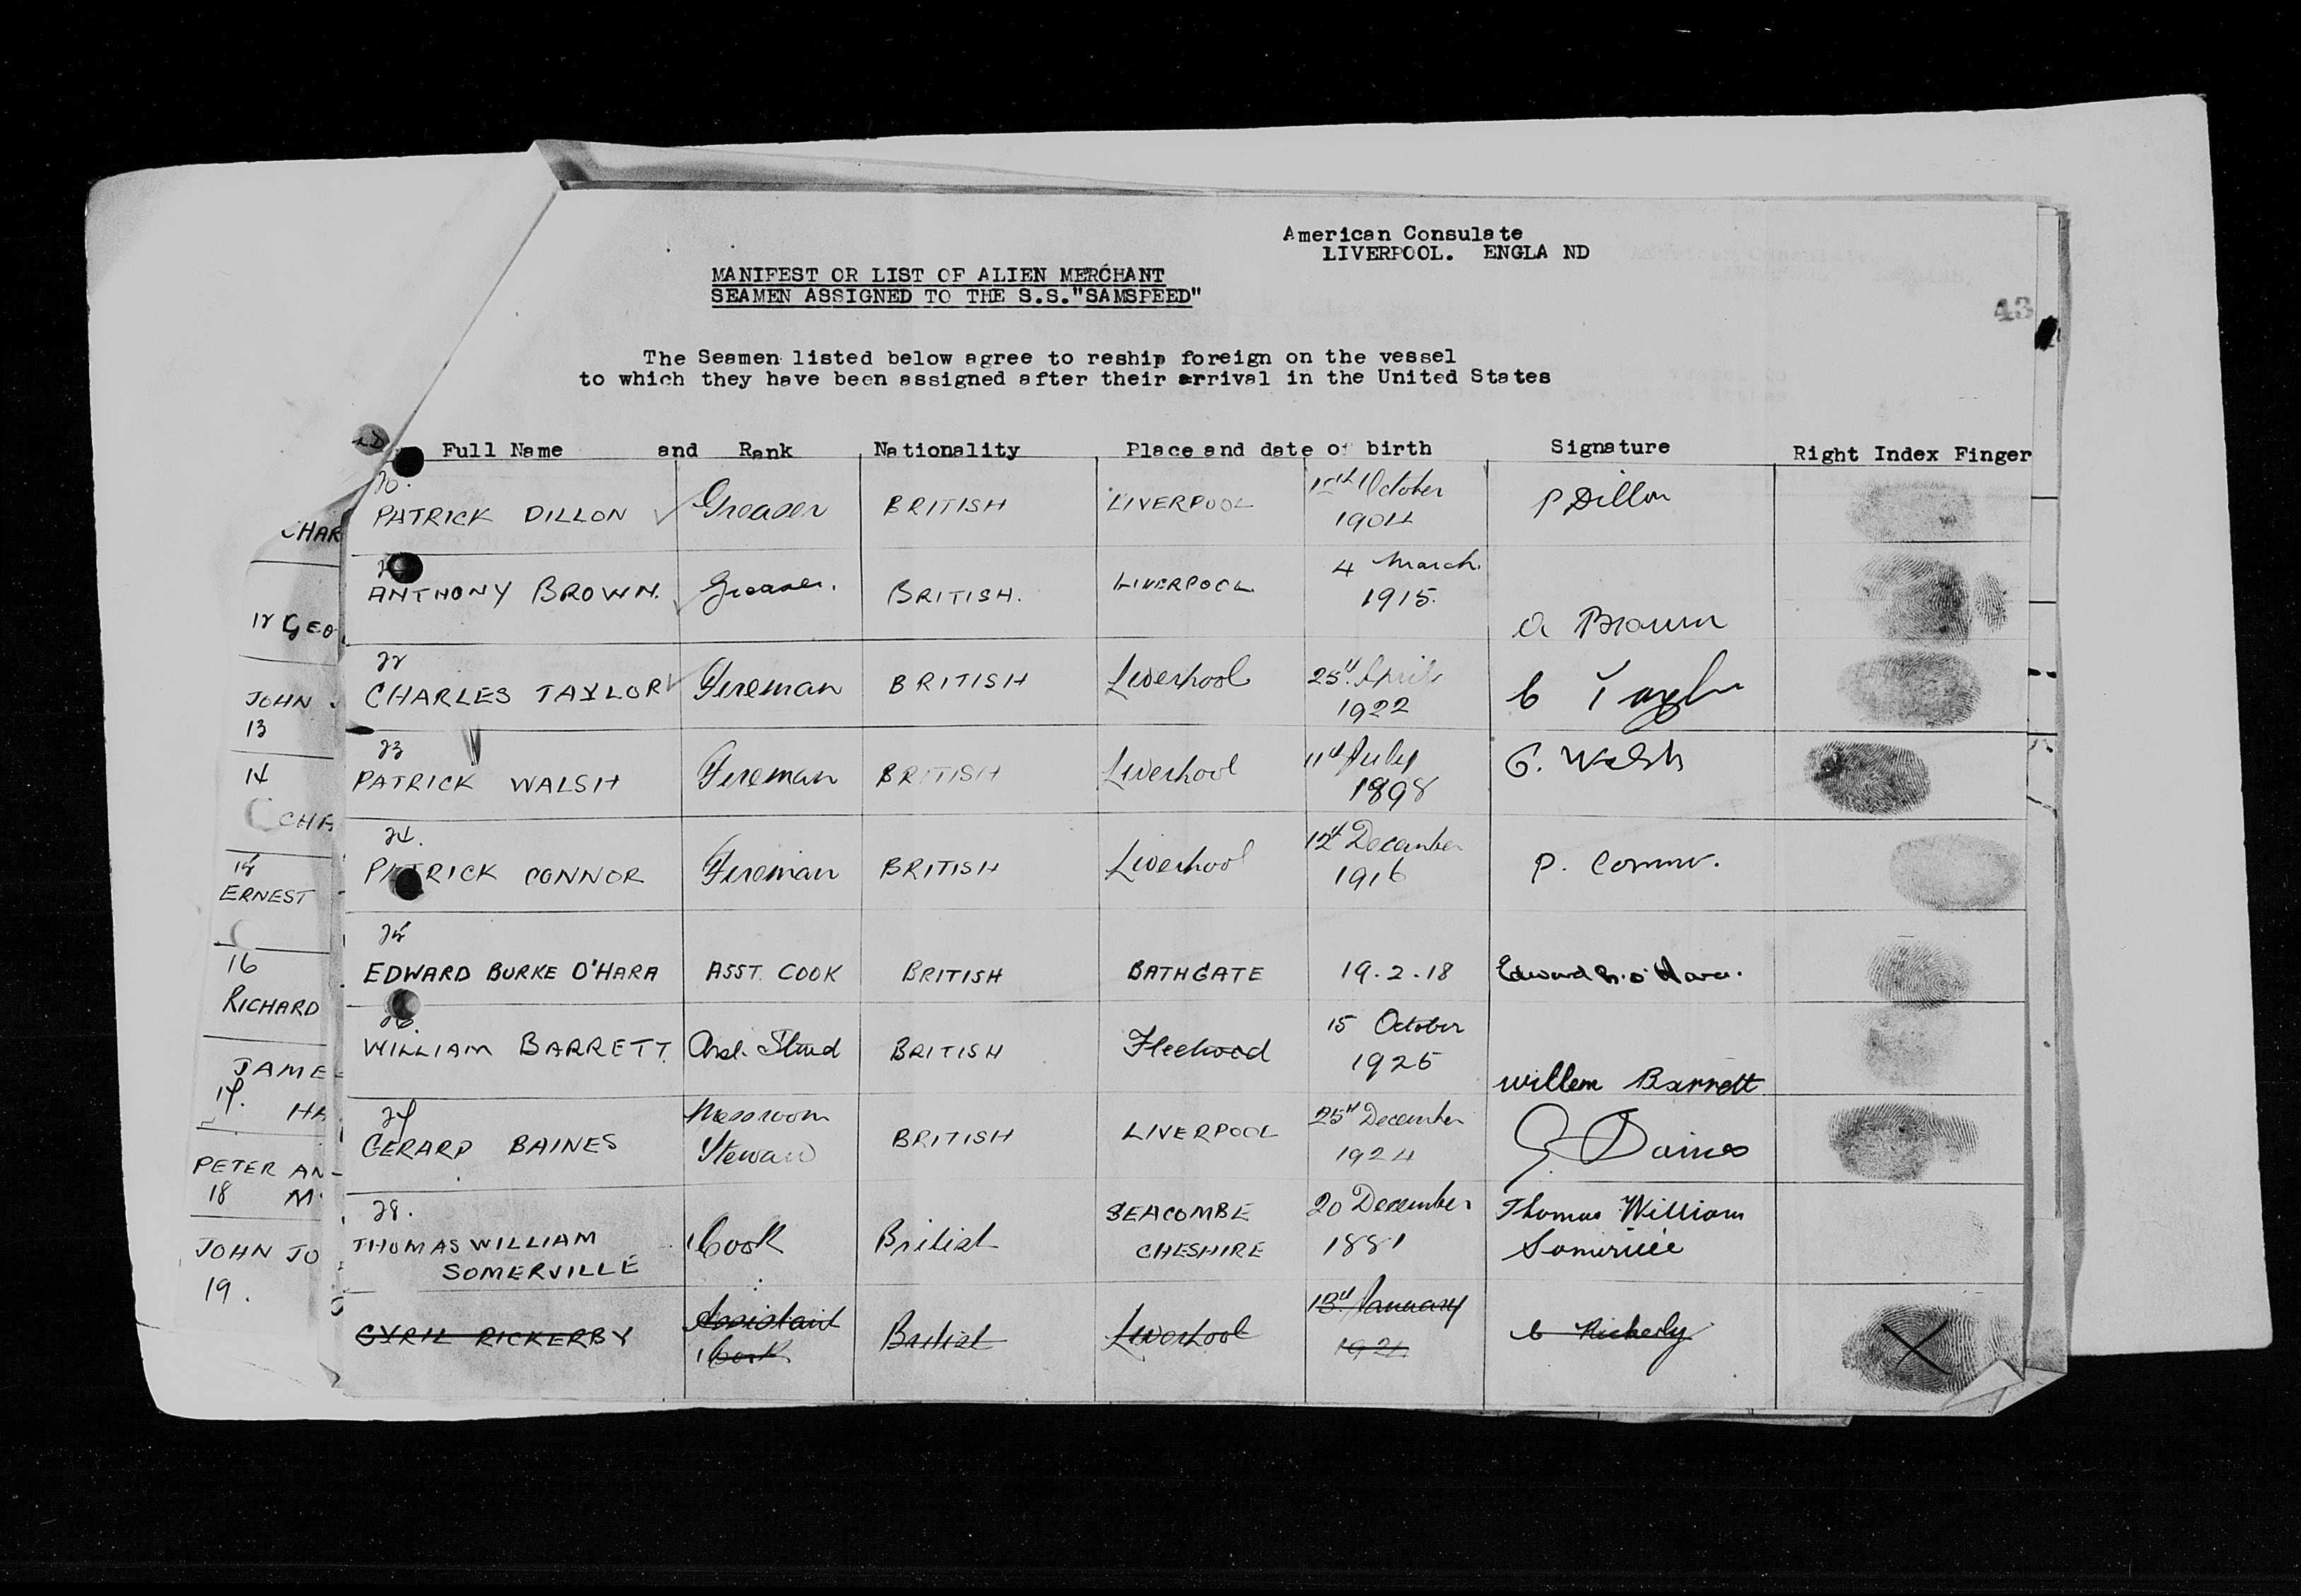 American Consulate
LIVERPOOL. ENGLA ND
MANIFEST OR LIST OF ALIEN MERCHANT
SEAMEN ASSIGNED TO THE S.S."SAMSPEED"
43
The Seamen listed below agree to reship foreign on the vessel
to which they have been assigned after their arrival in the United States
Full Name and Rank Nationality Place and date of birth Signature Right Index Finger
20.
PATRICK DILLON Greaser BRITISH LIVERPOOL October 1904 P Dillon
ANTHONY BROWN. Greaser. BRITISH. LIVERPOOL 4 March. 1915. A Brown
22
CHARLES TAYLOR Fireman BRITISH Liverpool 25th April 1922 C Taylor
23
PATRICK WALSH Fireman BRITISH Liverpool 11th July 1898 Walsh
24.
PATRICK CONNOR Fireman BRITISH Liverpool 12th December 1916 P. Connor.
25
EDWARD BURKE O'HARA ASST. COOK BRITISH BATHGATE 19.2.18 Edward B. O'Hara.
26
WILLIAM BARRETT. Asst. Stwd BRITISH Fleetwood 15 October 1925 Willem Barrett
27
GERARD BAINES Messroom Steward BRITISH LIVERPOOL 25th December 1924 G. Baines
28.
THOMAS WILLIAM SOMERVILLE Cook British SEACOMBE CHESHIRE 20 December 1881 Thomas William Somerville
CYRIL RICKERBY Assistant Cook British Liverpool 13th January C Rickerby
CHAR
12 GEO
JOHN
13
14
CHA
15
ERNEST
16
RICHARD
JAME
17.
HA
PETER AN
18 M
JOHN JO
19.